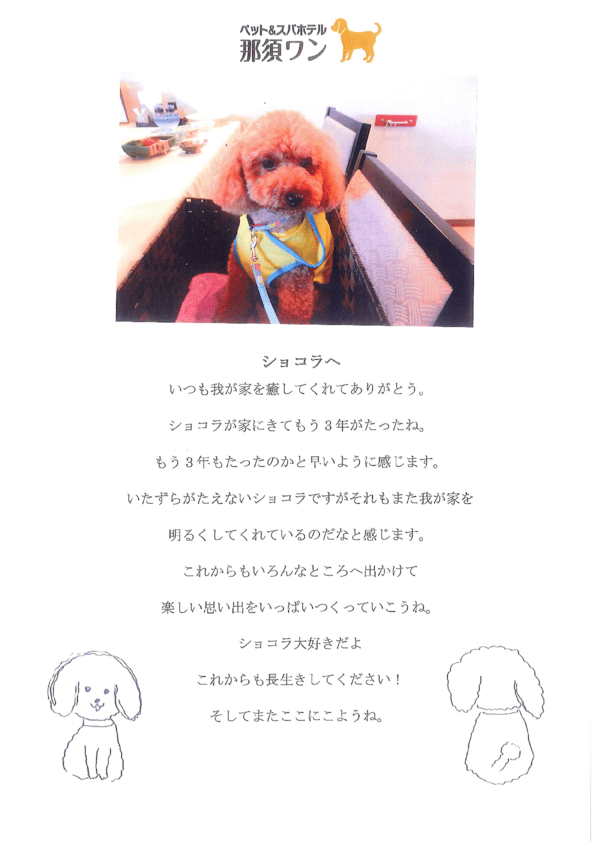 ペット&スパホテル
那須ワン
ショコラへ
いつも我が家を癒してくれてありがとう。
ショコラが家にきてもう３年がたったね。
もう３年もたったのかと早いように感じます。
いたずらがたえないショコラですがそれもまた我が家を
明るくしてくれているのだなと感じます。
これからもいろんなところへ出かけて
楽しい思い出をいっぱいつくっていこうね。
ショコラ大好きだよ
これからも長生きしてください！
そしてまたここにこようね。